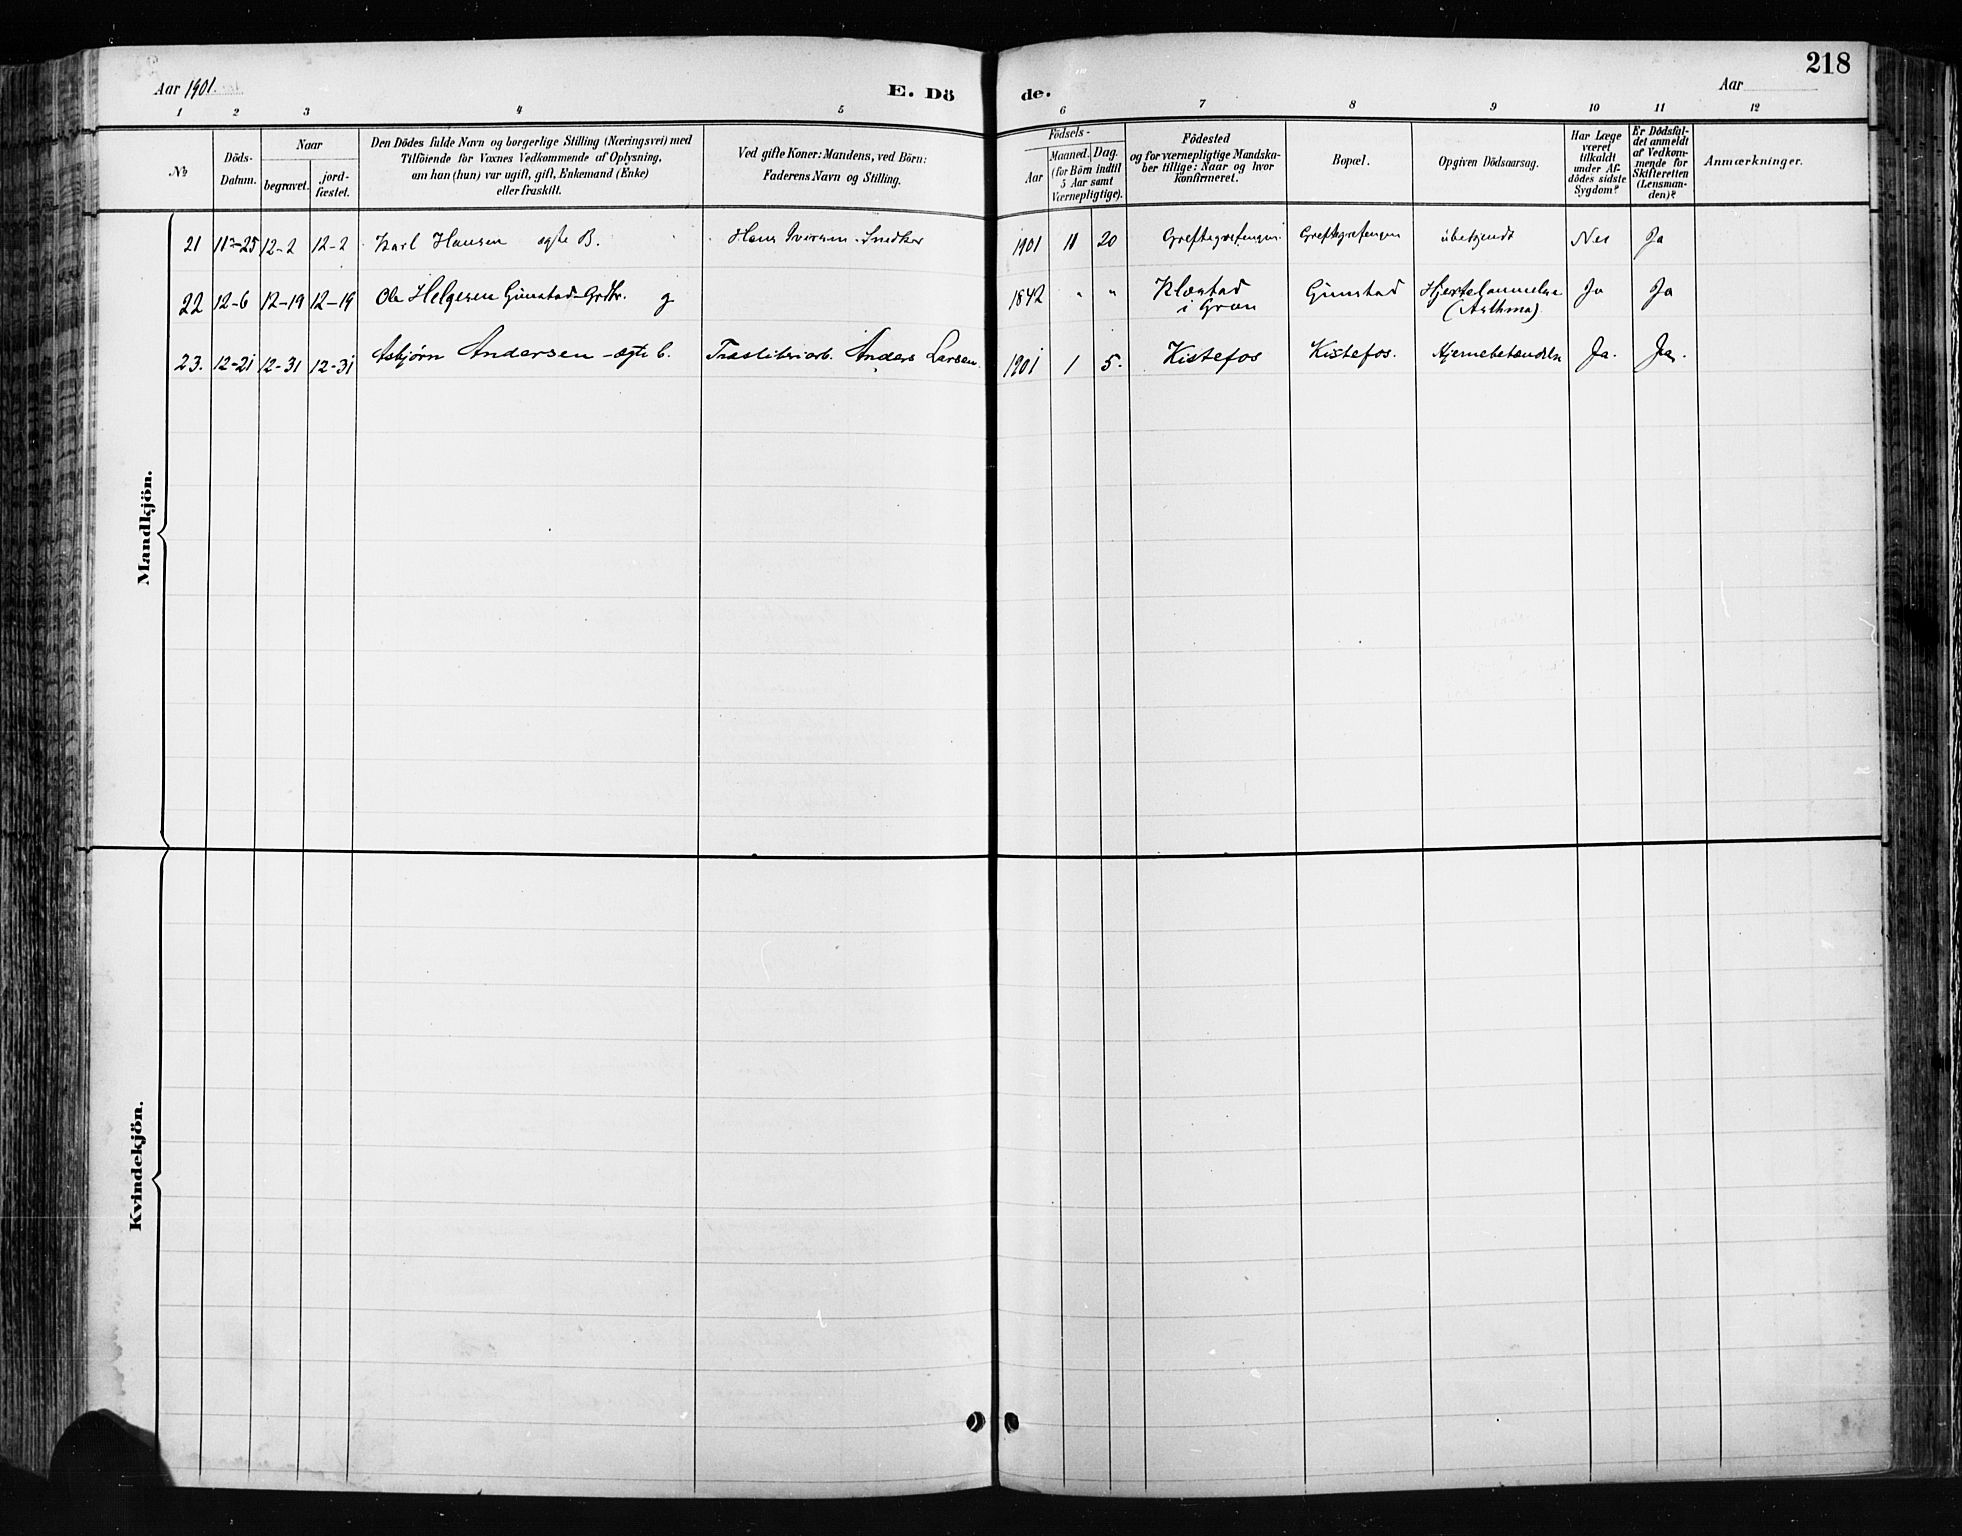 218
Aar 1901.
E. Dö
de.
Aar
1 2 3 4 5 6 7 8 9 10 11 12
№
Döds-
Datum.
Naar
begravet.
jord-
fæstet.
Den Dödes fulde Navn og borgerlige Stilling (Næringsvei) med
Tilföiende for Voxnes Vedkommende af Oplysning,
om han (hun) var ugift, gift, Enkemand (Enke)
eller fraskilt.
Ved gifte Koner: Mandens, ved Börn:
Faderens Navn og Stilling.
Födsels-
Aar
Maaned.
Dag.
(for Börn indtil
5 Aar samt
Værnepligtige).
Födested
og for værnepligtige Mandska-
ber tillige: Naar og hvor
konfirmeret.
Bopæl.
Opgiven Dödsaarsag.
Har Læge
været
tilkaldt
under Af-
dödes sidste
Sygdom?
Er Dödsfal-
det anmeldt
af Vedkom-
mende for
Skifteretten
(Lensman-
den)?
Anmærkninger.
Mandkjön.
21 11-25 12-2 12-2 Karl Hansen ægte B. Hans Iversen Snedker 1901 11 20 Greftegrefengen Greftegrefengen ubekjendt Nei Ja
22 12-6 12-19 12-19 Ole Helgesen Gunstad Grdbr. g 1842 " " Klæstad Gunstad Ja Ja
i Gran (Asthma)
23. 12-21 12-31 12-31 Asbjørn Andersen - ægte b. Træsliberiarb. Anders Larsen 1901 1 5. Kistefos Kistefos. Hjernebetændelse Ja. Ja.
Kvindekjön.